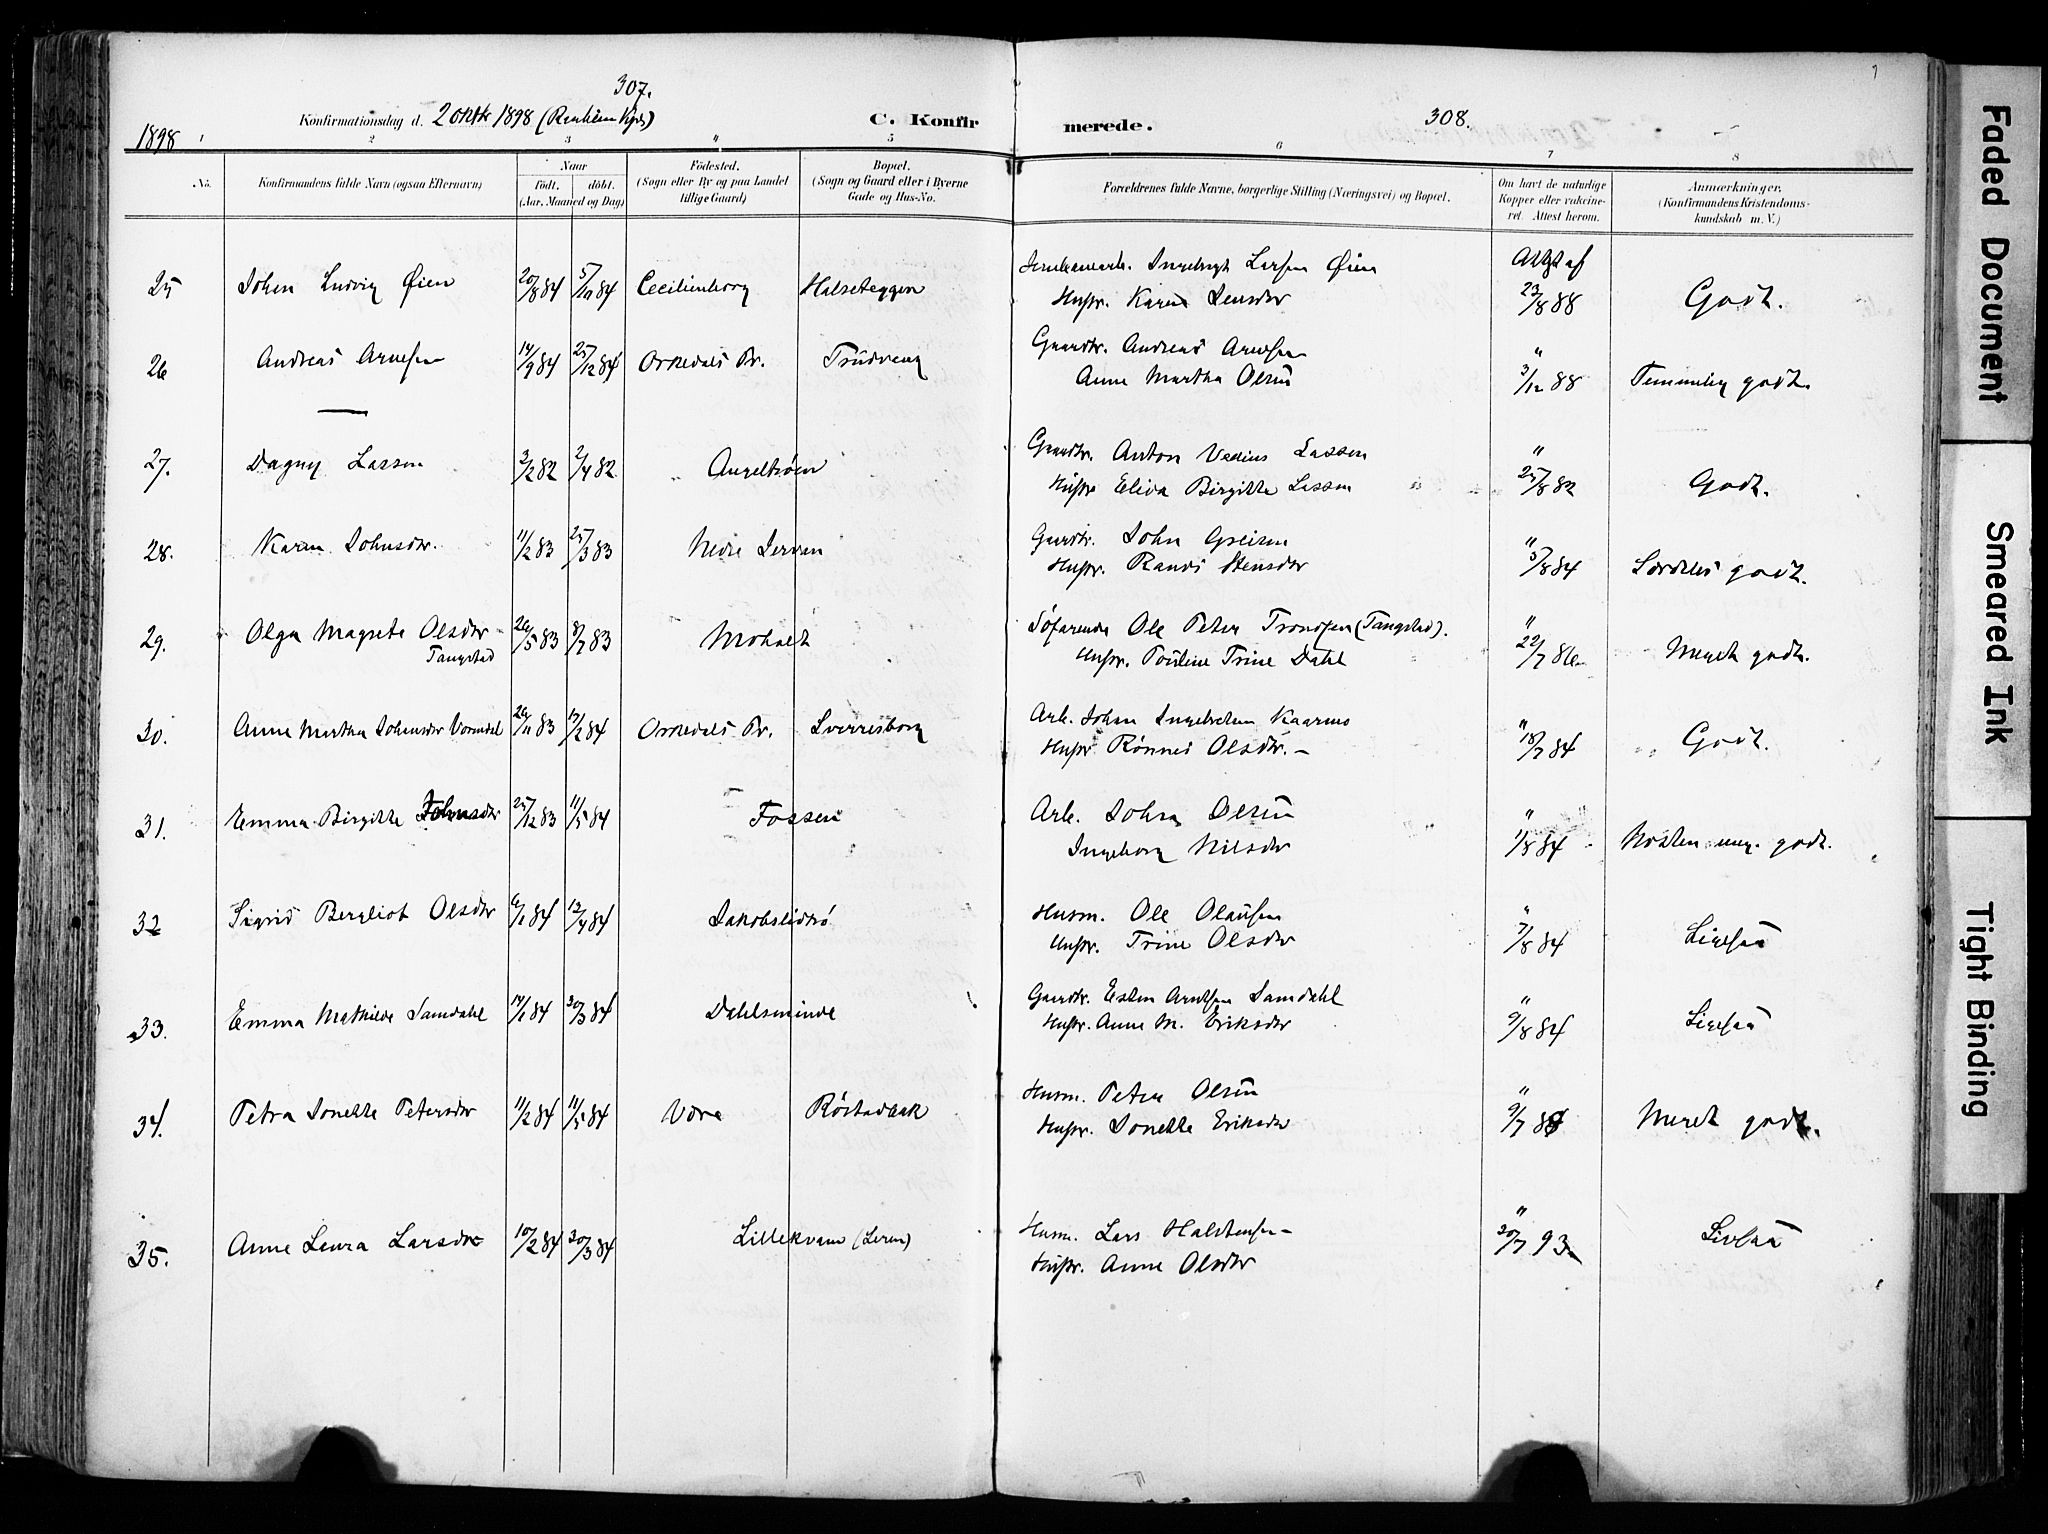 307.
1898
Konfirmationsdag d. 2 oktbr 1898
C. Konfir
merede.
308.
1 2 3 4 5 6 7 8
No.
Konfirmandens fulde Navn (ogsaa Efternavn)
Naar
født. døbt.
(Aar, Maaned og Dag)
Fødested.
(Sogn eller By og paa Landet
tillige Gaard)
Bopæl.
(Sogn og Gaard eller i Byerne
Gade og Hus-No.
Forældrenes fulde Navne, borgerlige Stilling (Næringsvei) og Bopæl.
Om havt de naturlige
Kopper eller vakcine-
ret. Attest herom.
Anmærkninger.
(Konfirmandens Kristendoms-
kundskab m. V.)
25 Johan Ludvig Øien 20/8 84 5/10 84 Cecilienborg Halseteggen Ingebrigt Larsen Øien Attst af
Hustr. Karen Jensdtr 23/8 88 Godt.
26 Andreas Arntsen 14/9 84 25/12 84 Orkedals Pr. Trudvang Gaardbr. Andreas Arntsen "
Anne Martha Olsen 3/12 88 Temmelig godt.
27. Dagny Lassen 3/2 82 2/4 82 Angeltrøen Gaardbr. Anton Vedius Lassen "
Hustr Elisa Birgitte Lassen 25/8 82 Godt.
28. Karen Johnsdtr. 11/2 83 25/3 83 Nedre Jerven Gaardbr. John
Hustr. Randi Stensdtr " 5/8 84 Særdeles godt.
29. Olga Magrete Olsdtr 26/5 83 8/7 83 Moholt Søfarende Ole Peter Trondsen (Tangstad). "
Tangstad Hustr. Pauline Trine Dahl 22/7 86 Meget godt.
30. Anne Martha Johnsdtr Vormdal 26/11 83 17/2 84 Orkedals Pr. Sverresborg Arb. Johan Ingebretsen
Hustr Rønnes Olsdtr. - " 18/7 84 Godt.
31. Emma Birgitte Johnsdtr 25/12 83 11/5 84 Fossen Arb. John Olsen "
Ingeborg Nilsdtr 1/8 84 Næsten meg. godt.
32 Sigrid Bergliot Olsdtr 6/1 84 13/4 84 Jakobslidtrø Husm. Ole Olaussen "
Hustr. Trine Olsdtr 7/8 84 Ligesaa
33. Emma Mathilde Samdahl 14/1 84 30/3 84 Dahlsminde Gaardbr. Esten Arntsen Samdahl "
Hustr. Anne M. Eriksdtr 9/8 84 Ligesaa
34. Petra Jonette Petersdtr 11/2 84 11/5 84 Vore Røstadbak Husm. Peter Olsen "
Hustr. Jonette Eriksdtr 9/7 84 Meget godt.
35. Anne Laura Larsdtr 10/2 84 30/3 84 Lillekvam (Leren) Husm. Lars Halstensen - "
Hustr. Anne Olsdtr 20/7 93 Ligesaa
Faded Document
Smeared Ink
Tight Binding